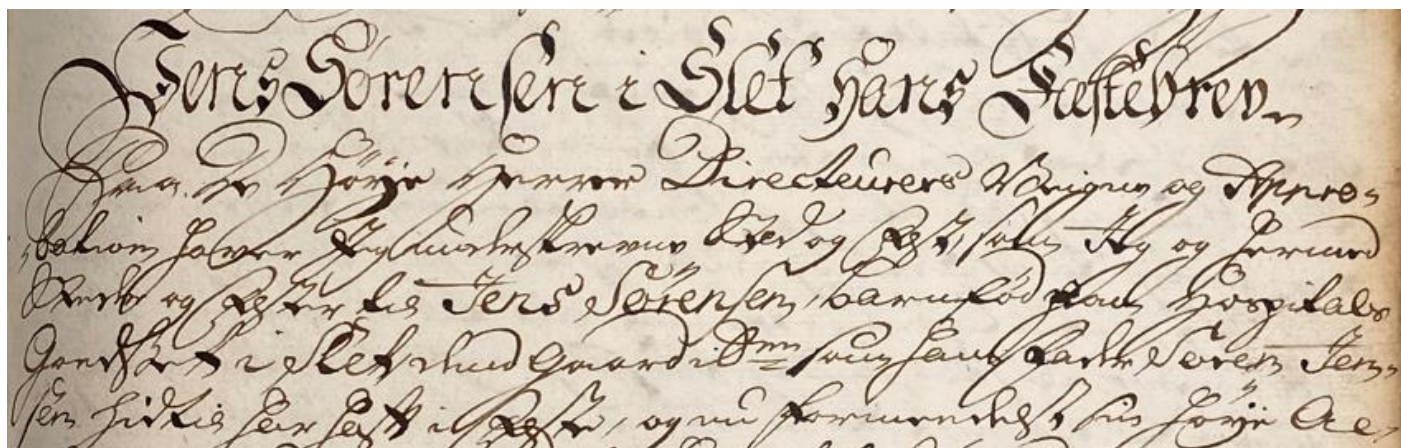 Jens Sørensen i Slet hans Fæstebrev
Paa De Høye Herrer Directeurers Vegne og Appro-
bation haver Jeg underskrevne Sted og Fæst, som Jeg og hermed
Steder og Fæster til Jens Sørensen, barnfød paa Hospitals
Godset i Slet dend Gaard ibdm som hans Fader Søren Jen-
sen hidtil har haft i Fæste, og nu formedelst sin høye Al-